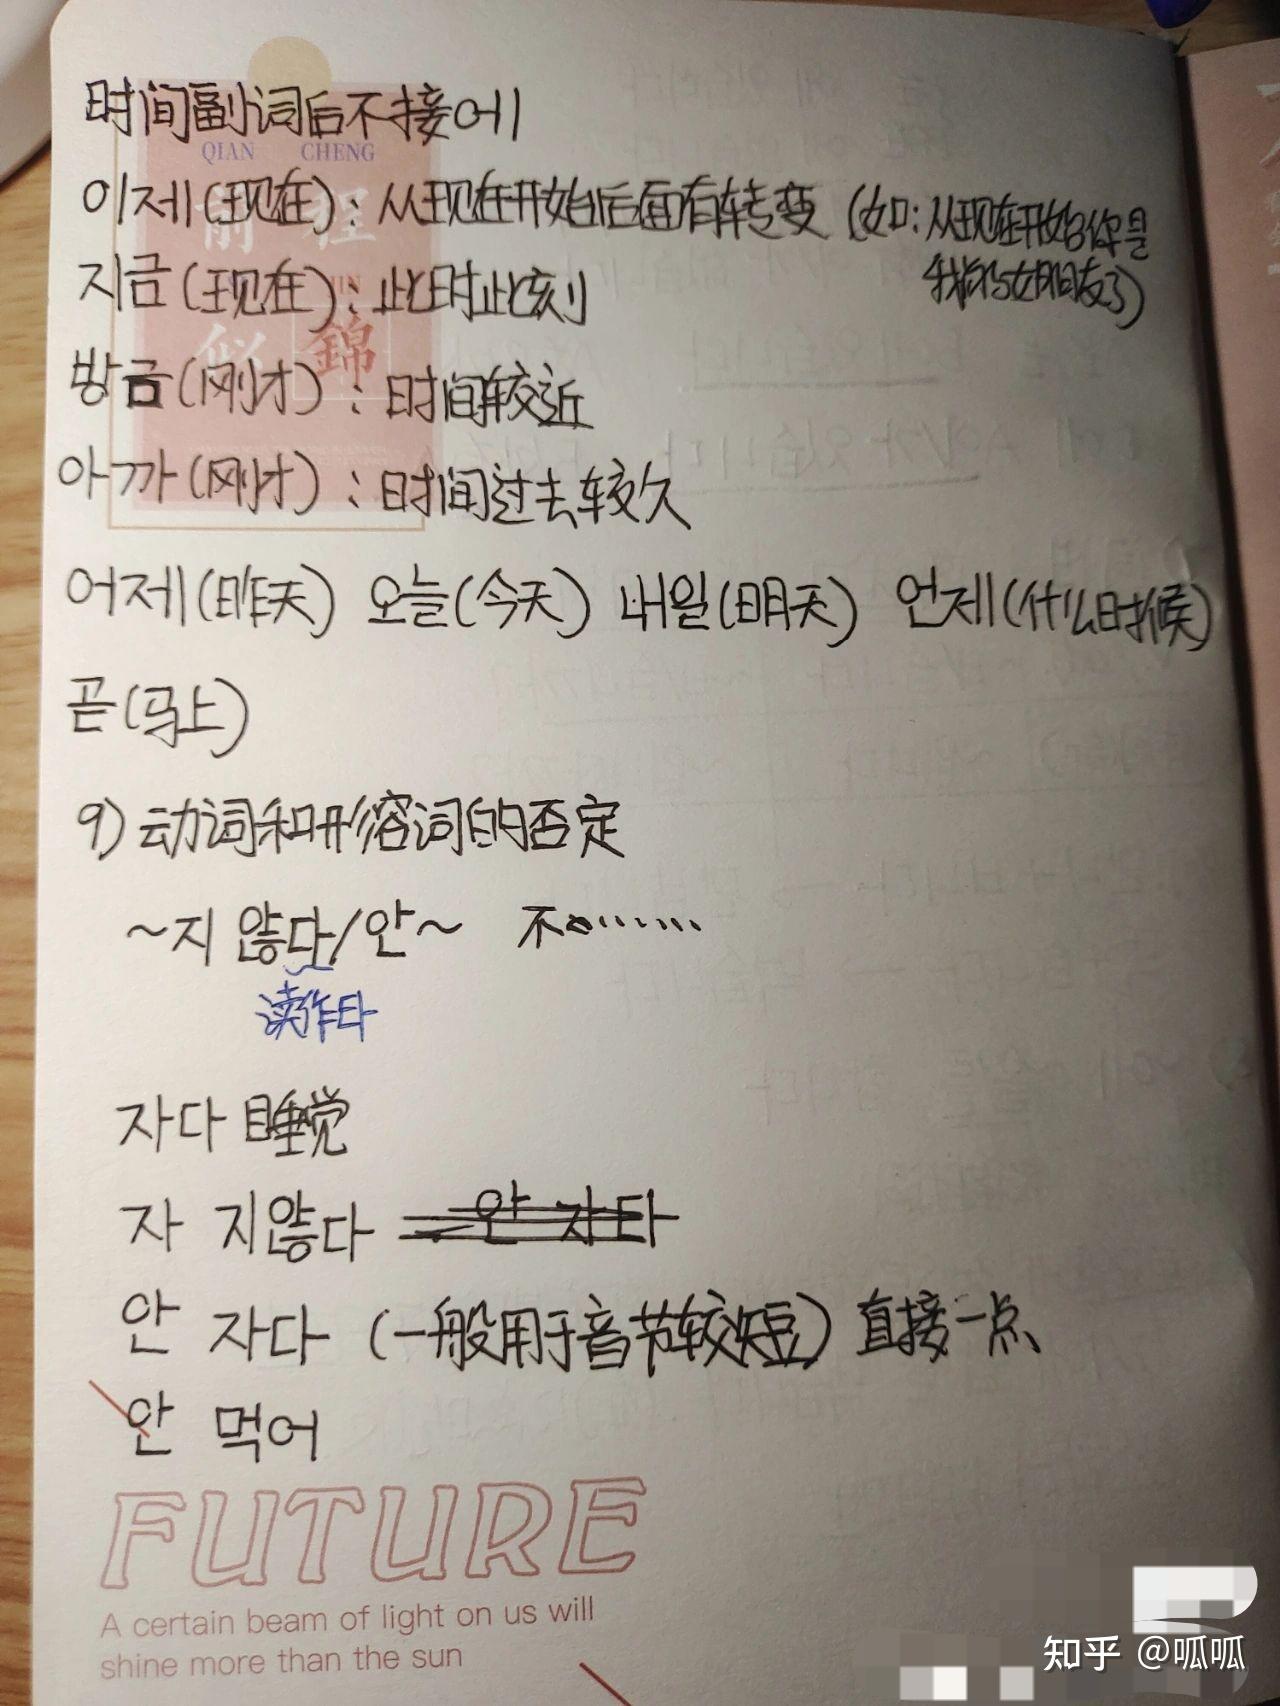 时间副词后不接에
QIAN CHENG
前程
이제(现在)：从现在开始后面有转变 (如：从现在开始你是
我的女朋友了)
지금(现在)：此时此刻
似錦
방금(刚才)：时间较近
아까(刚才)：时间过去较久
어제(昨天) 오늘(今天) 내일(明天) 언제(什么时候)
곧(马上)
9) 动词和形容词的否定
~지 않다/안~ 不……
读作타
자다 睡觉
자 지않다 안 자타
안 자다 (一般用于音节较短) 直接一点
안 먹어
FUTURE
A certain beam of light on us will
shine more than the sun
知乎 @呱呱